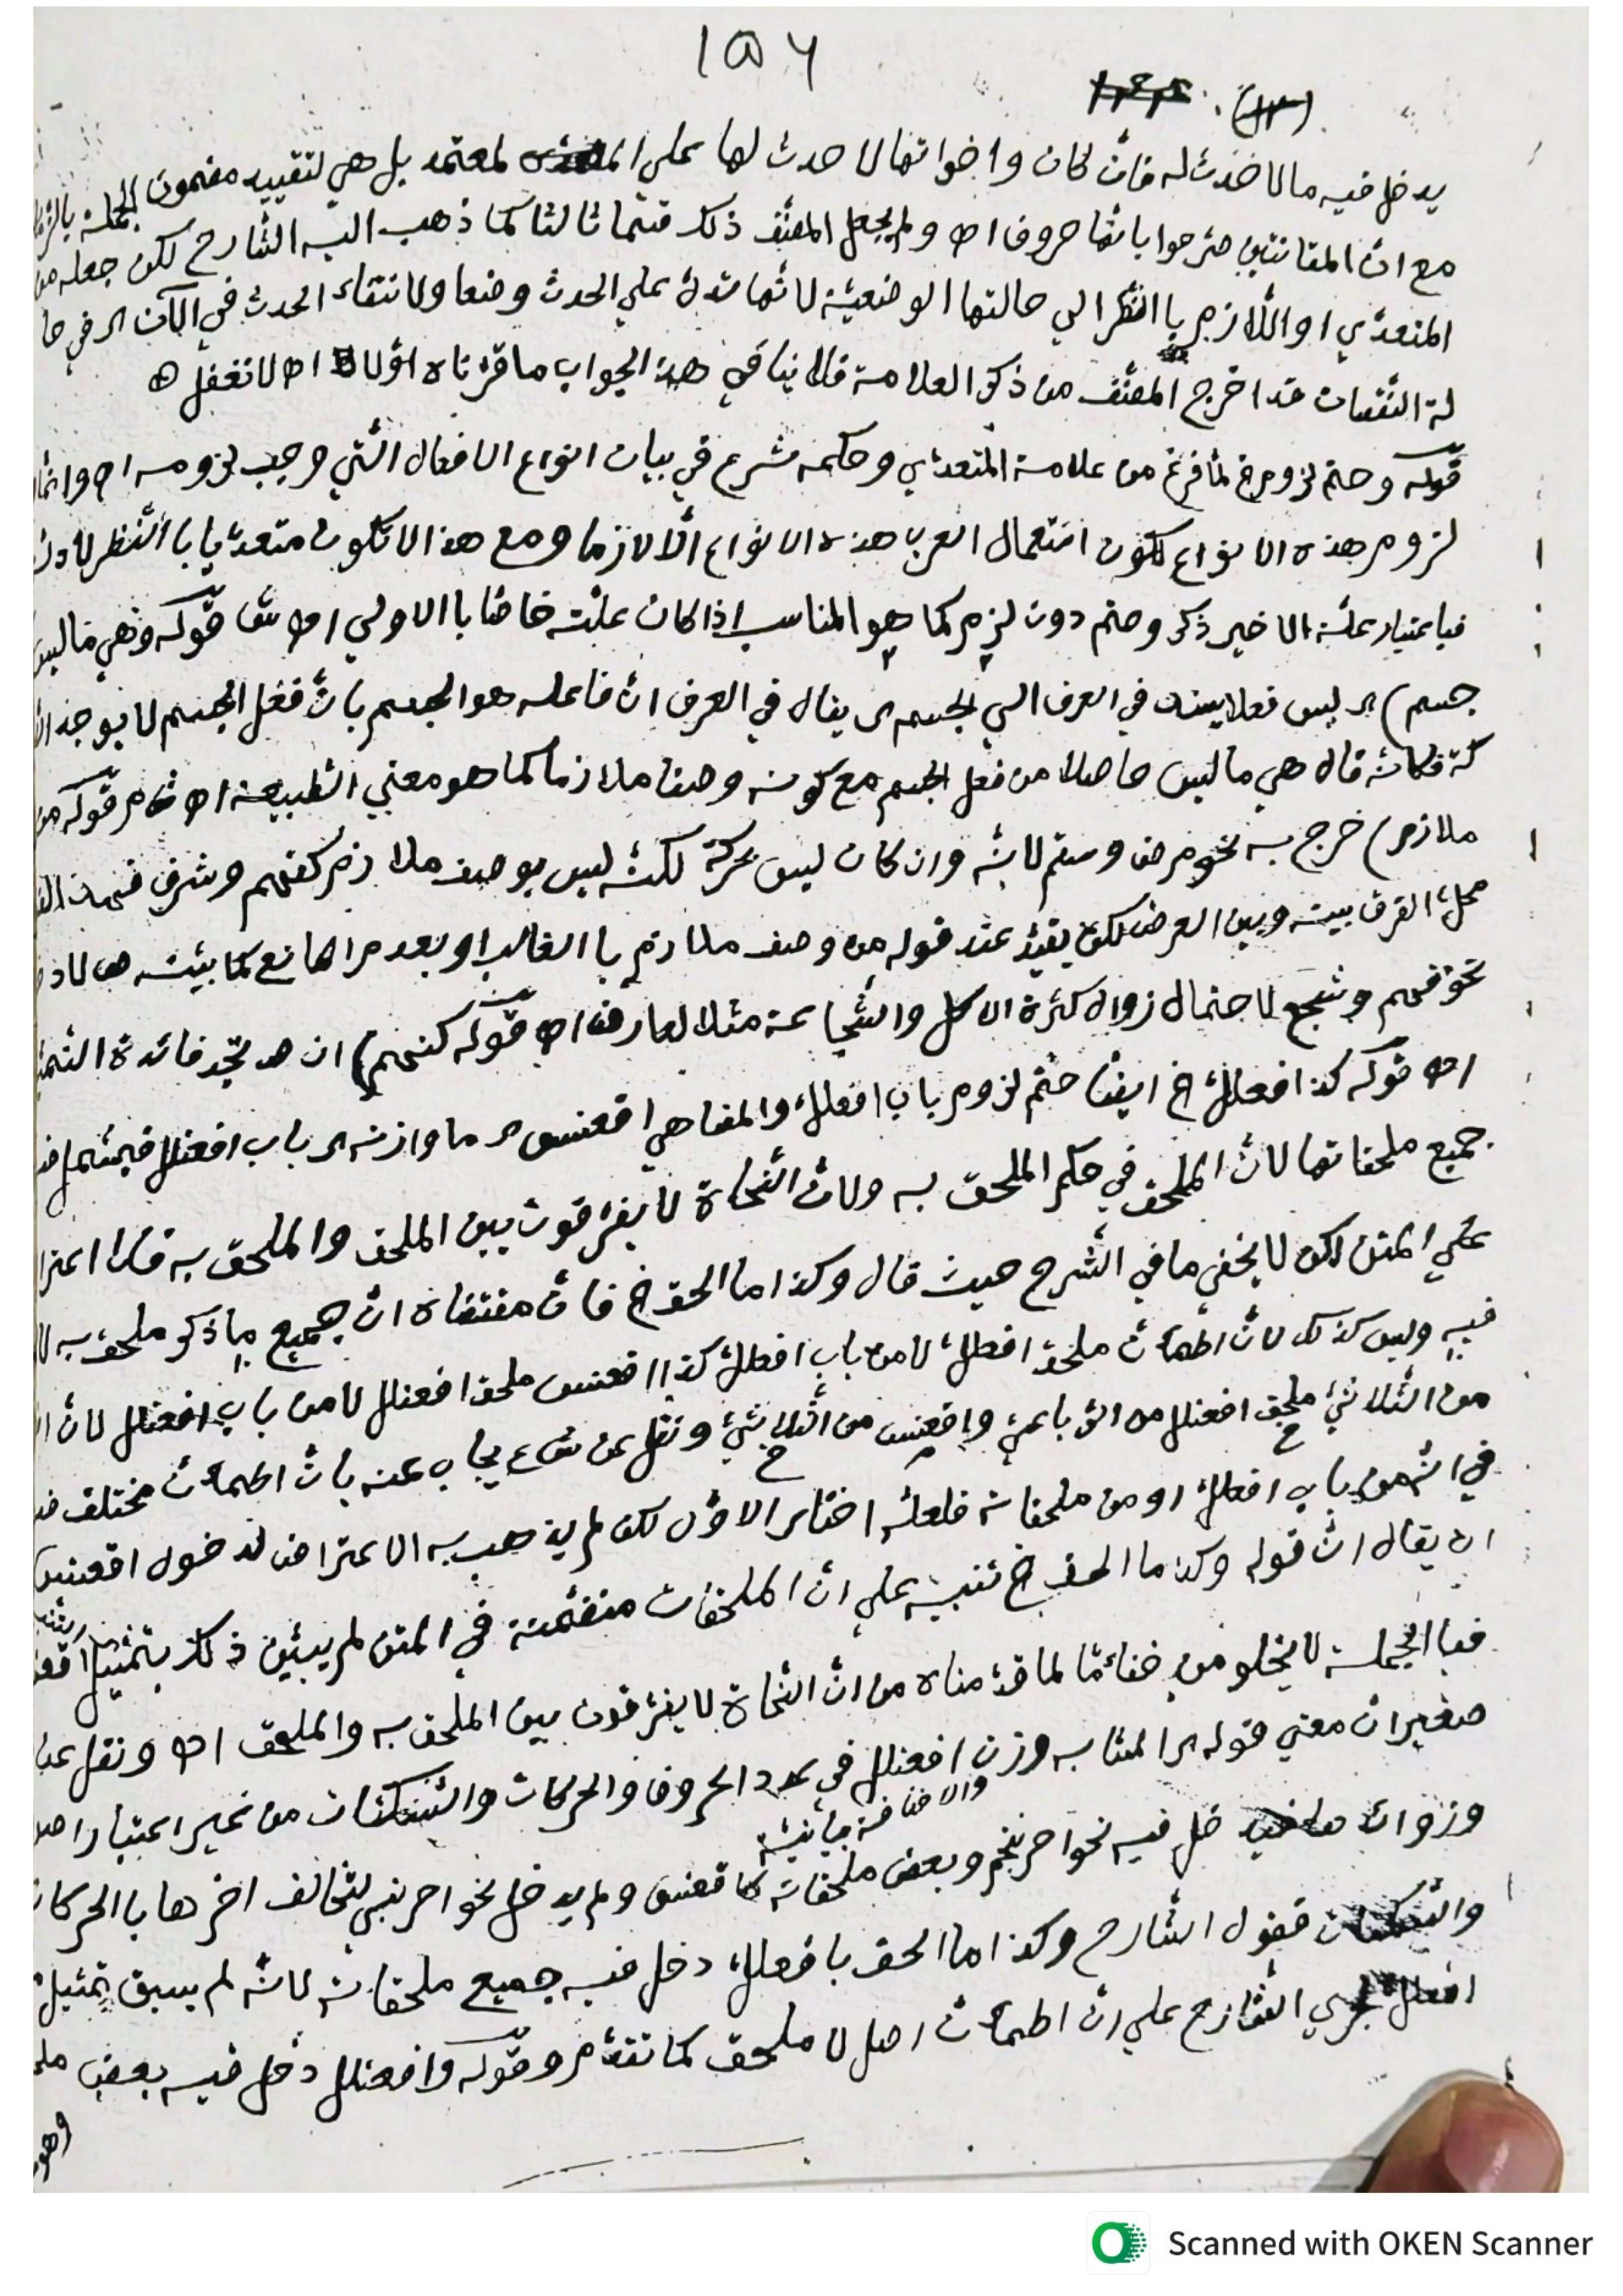 ١٥٦
(١٣)
يدخل فيه مالا حدث له فانّ كان واخواتها لا حدث لها على المعتمد بل هي لتقييد مضمون الجملة
مع انّ المقانتين صرحوا بانها حروف اه ولم يجعل المصنّف ذلك قسما ثالثا كما ذهب اليه الشارح لكن جعله من
المتعدّي او اللّازم باالنّظر الي حالتها الوضعيّة لانّها تدلّ علي الحدث وضعا ولانتفاء الحدث في الآن اي في حا
لة النّقصان قد اخرج المصنّف من ذكر العلامة فلا ينافي هذا الجواب ما قرّرناه اوّلا اه لاتغفل
قوله وحتم لزوم الخ لمّا فرغ من علامة المتعدّي وحكمه شرع في بيان انواع الافعال الّتي وجب لزومه اه وانّما
لزوم هذه الانواع لكون استعمال العرب هذه الانواع الّا لازما ومع هذا لا تكون متعدّيا باالنّظر
فباعتبار علّة الاخير ذكر وحتم دون لزم كما هو المناسب اذا كان علّته خاصّا باالاولي اه قوله وهي ما ليس
جسم) اي ليس فعلا يسند في العرف الي الجسم اي يقال في العرف انّ فاعله هو الجسم بانّ فعل الجسم لا يوجد
كة فكانّه قال هي ما ليس حاصلا من فعل الجسم مع كونه وصفا ملازما كما هو معني الطبيعة اه قوله
ملازم) خرج به نحو مرض وسقم لانّه وان كان ليس بحركة لكنّه ليس بوصف ملازم كفهم وشرف
محلّ الفرق بينه وبين العرض لكن يقيّد عند قوله من وصف ملازم باالغالب او بعدم المانع كما بيّنه
نحو فهم وشجع لاحتمال زوال كثرة الاكل والشّجاعة مثلا لعارض اه قوله كنهم) ان هد تجد فائدة
اه قوله كذا افعللّ الخ ايضا حتم لزوم باب افعللّ والمضاهي اقعنسس اي ما وازنه اي باب افعنلل فيشمل
جميع ملحقاتها لانّ الملحق في حكم الملحق به ولانّ النّحاة لا يفرّقون بين الملحق والملحق به فلا
علي المتن لكن لا يخفي ما في الشّرح حيث قال وكذا ما الحق الخ فانّ مقتضاه انّ جميع ما ذكر ملحق به
فيه وليس كذلك لانّ اطمأنّ ملحق افعللّ لا من باب افعللّ كذا اقعنسس ملحق افعنلل لا من باب افعنلل لانّ
من الثّلاثيّ ملحق افعنلل من الرّباعيّ واقعنسس من الثّلاثيّ ونقل عن يجاب عنه بانّ اطمأنّ مختلف
في انّه من باب افعللّ او من ملحقاته فلعلّه اختار الاوّل لكن لم يذهب به الاعتراض لدخول اقعنسس
ان يقال انّ قوله وكذا ما الحق الخ تنبيه علي انّ الملحقات متضمّنة في المتن لم يبيّن ذلك بتمثيل
فباالجملة لا يخلو من خفاء مّا لما قدّمناه من انّ النّحاة لا يفرّقون بين الملحق به والملحق اه ونقل عن
صغير انّ معني قوله المشابه وزن افعنلل في عدد الحروف والحركات والسّكنات من غير اعتبار
والاضافة بيانيّة
وزوائد دخل فيه نحو احرنجم وبعض ملحقاته كاقعنسس ولم يدخل نحو احرنبي لتخالف اخرها باالحركات
والسّكنات فقول الشّارح وكذا ما الحق بافعللّ دخل فيه جميع ملحقاته لانّه لم يسبق تمثيل
افعللّ جري الشّارح علي انّ اطمأنّ اصل لا ملحق كما تقدّم وقوله وافعنلل دخل فيه بعض
وهو
Scanned with OKEN Scanner